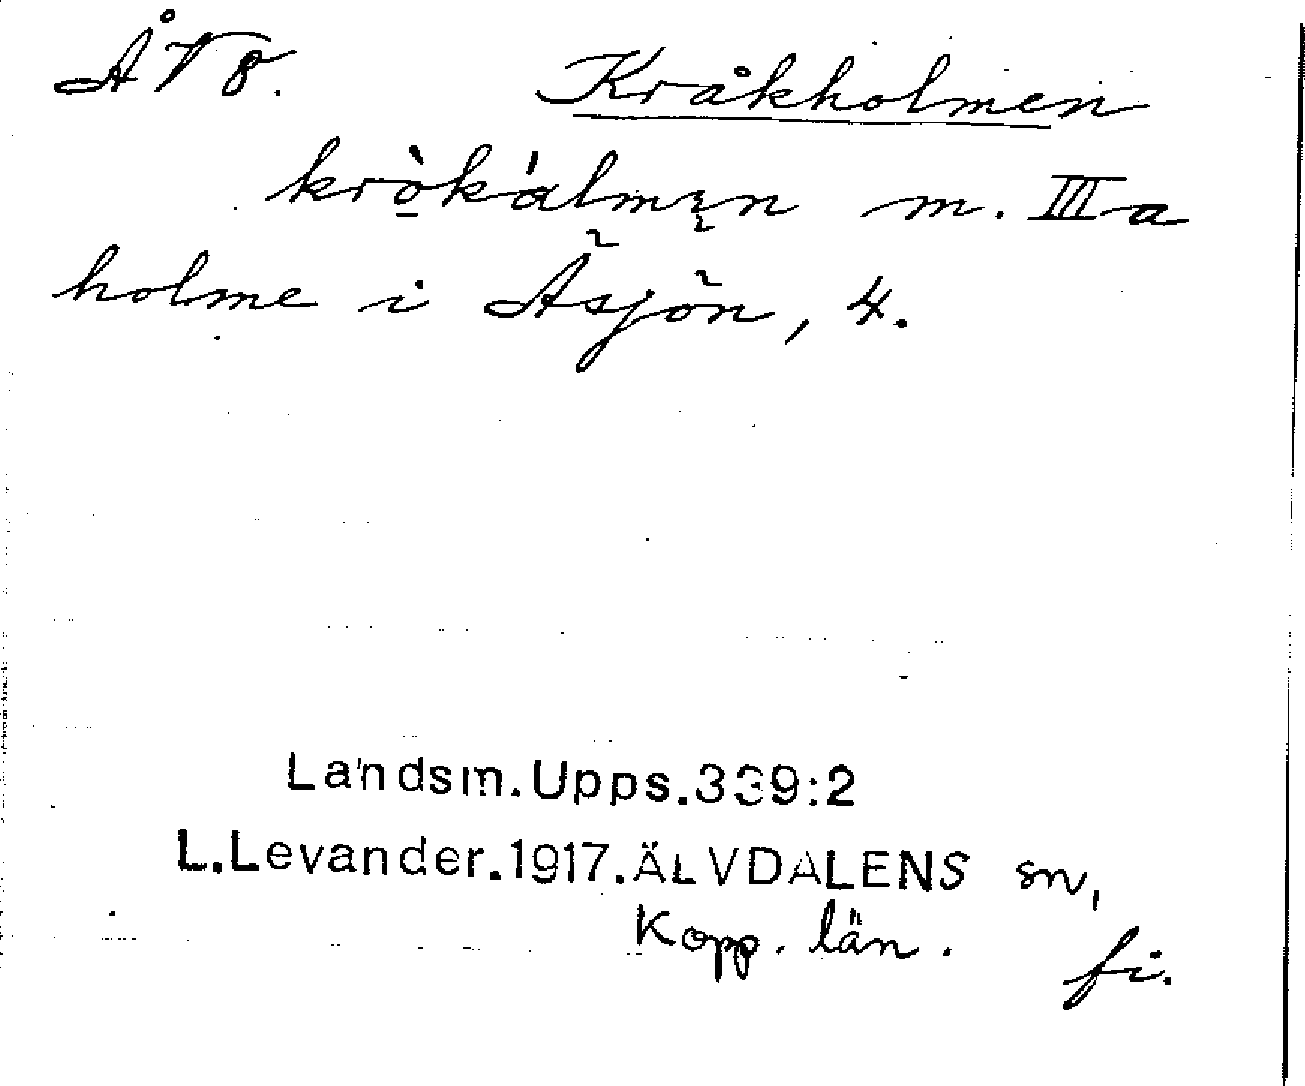 ÅV8. Kråkholmen
krò̠kálmęn m. IIIa
holme i Åsjön, 4.
Landsm.Upps.339:2
L.Levander.1917.ÄLVDALENS sn,
Kopp. län.
fi.